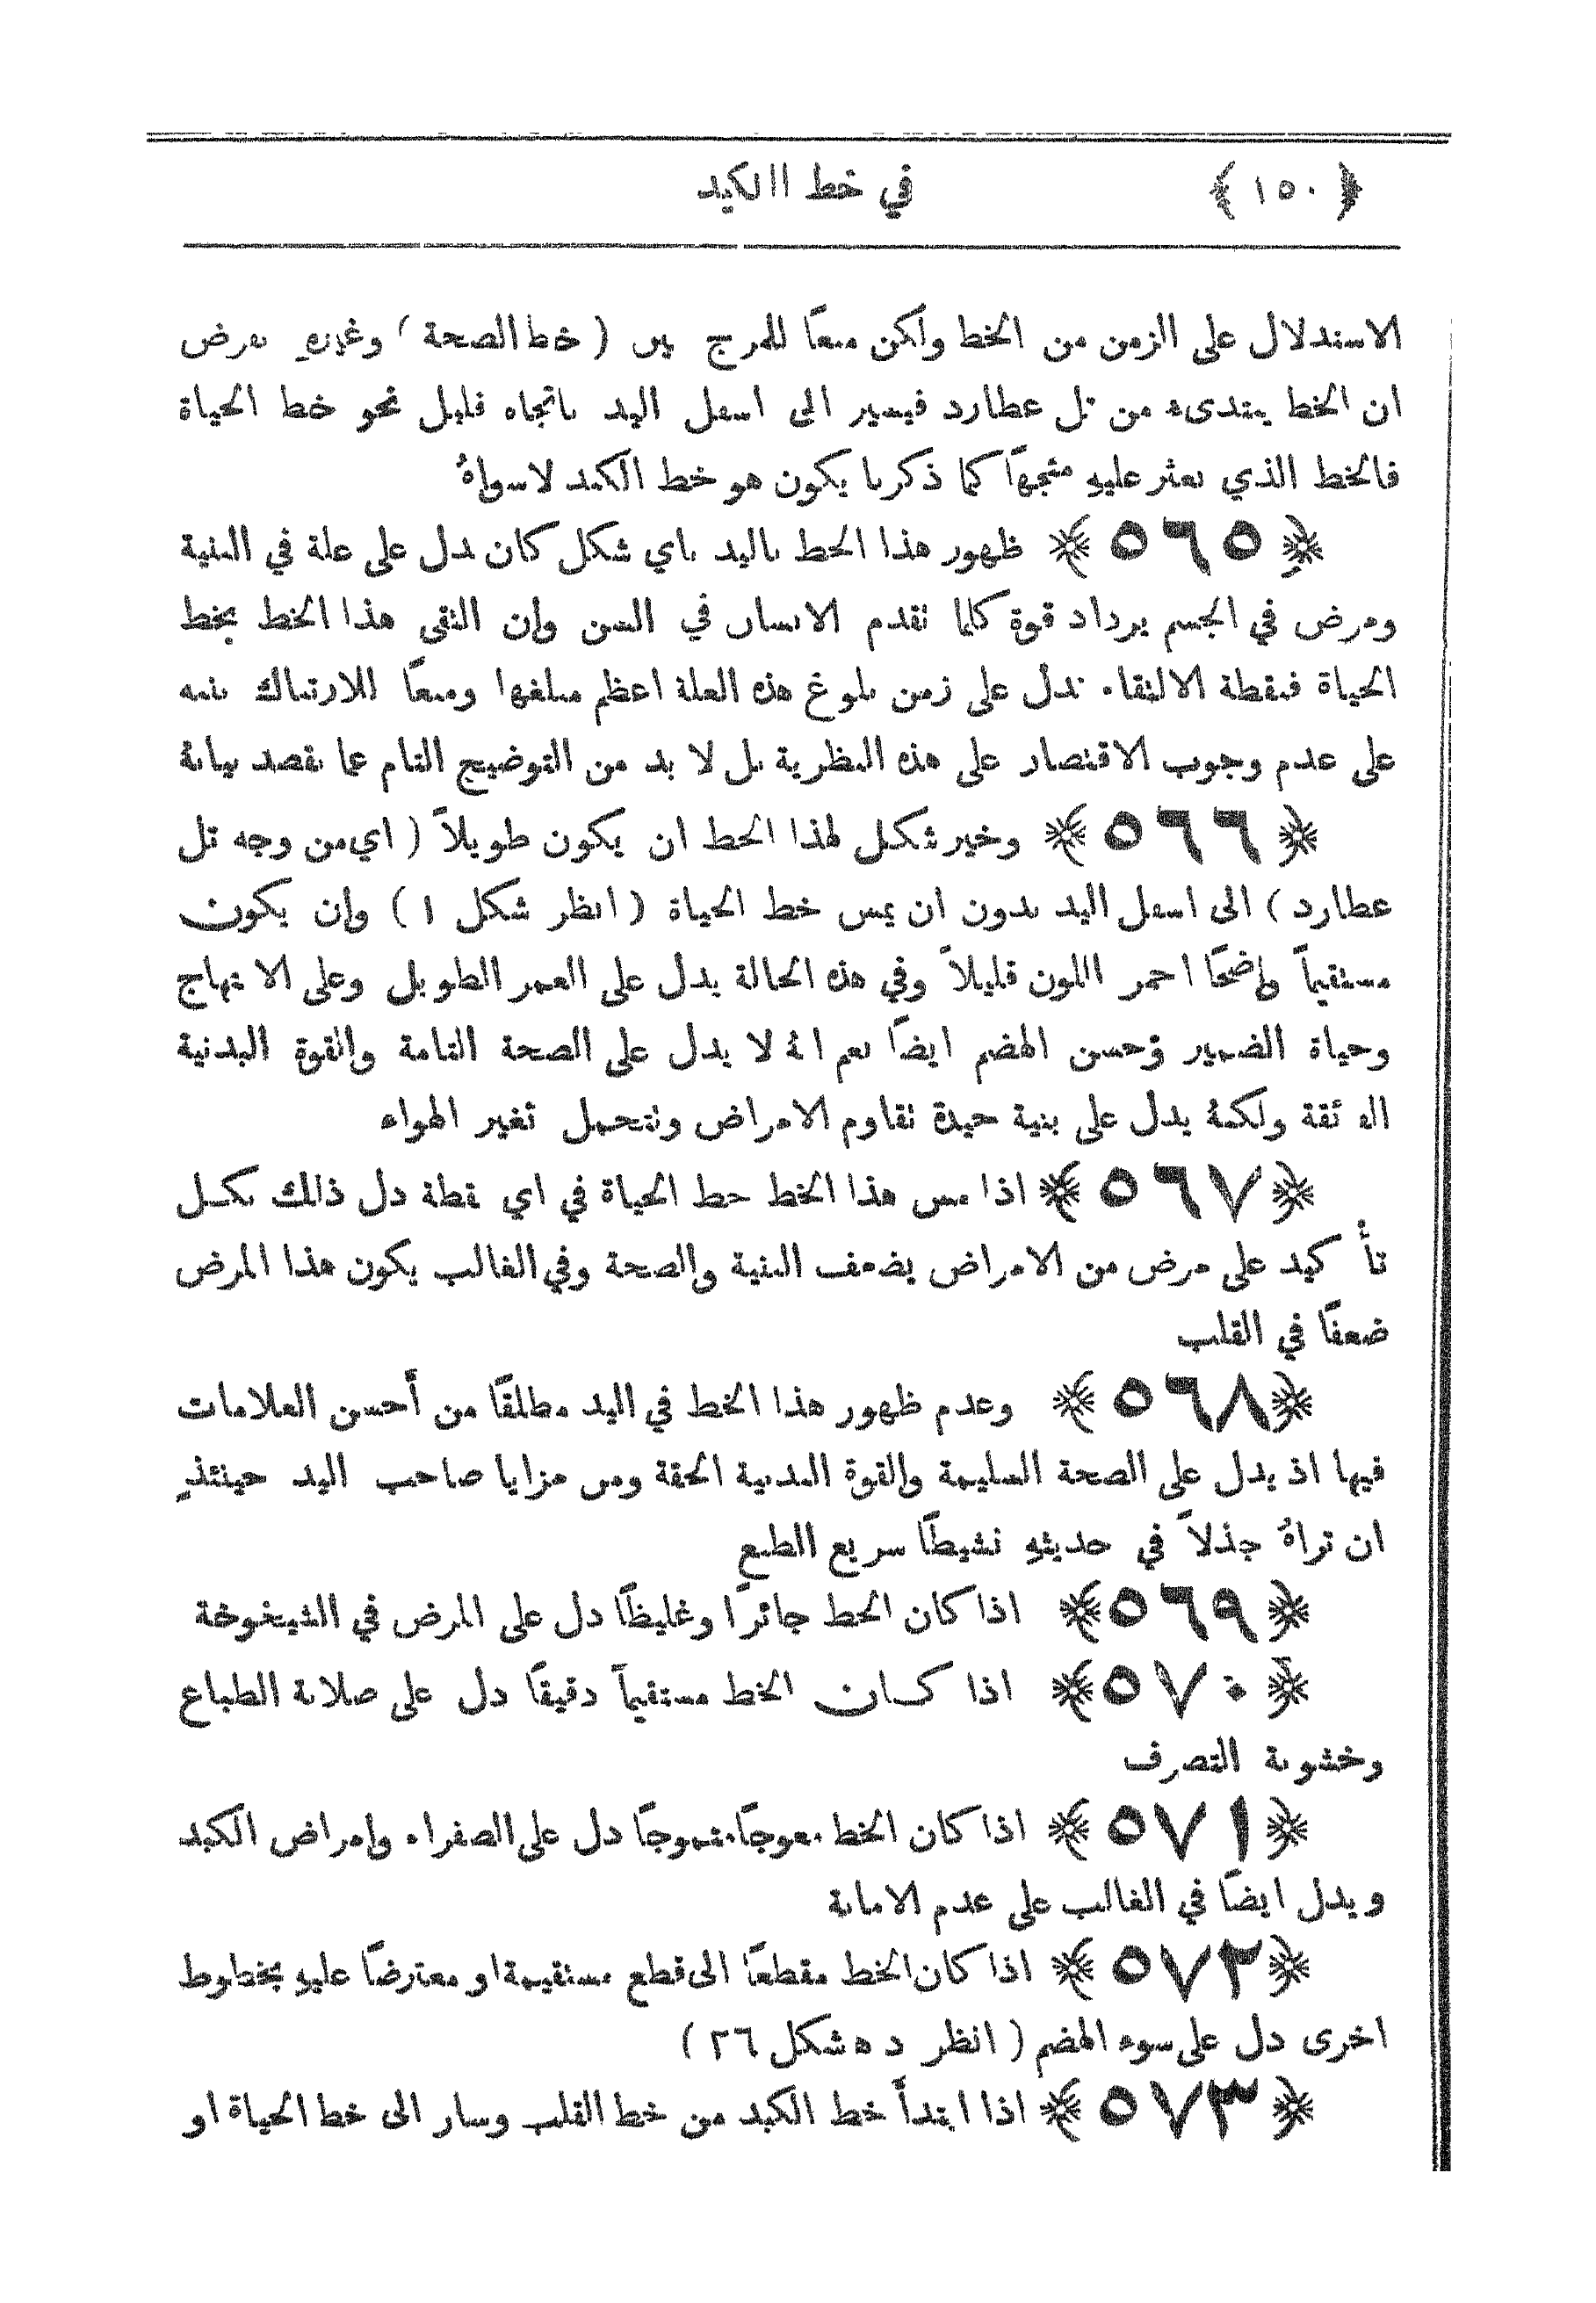 ﴿ ١٥٠ ﴾ في خط الكبد
الاستدلال على الزمن من الخط ولكن منعًا للمزج بين ( خط الصحة ) وغيره نفرض
ان الخط يبتدىء من تل عطارد فيسير الى اسفل اليد باتجاه قليل نحو خط الحياة
فالخط الذي نعثر عليهِ متجهًا كما ذكرنا يكون هو خط الكبد لا سواهُ
﴿ ٥٦٥ ﴾ ظهور هذا الخط باليد باي شكل كان يدل على علة في البنية
ومرض في الجسم يزداد قوة كلما تقدم الانسان في السن وان التقى هذا الخط بخط
الحياة فنقطة الالتقاء تدل على زمن بلوغ هذه العلة اعظم مبلغها ومنعًا للارتباك ننبه
على عدم وجوب الاقتصار على هذه النظرية بل لا بد من التوضيح التام عما نقصد بيانهُ
﴿ ٥٦٦ ﴾ وخير شكل لهذا الخط ان يكون طويلاً ( اي من وجه تل
عطارد ) الى اسفل اليد بدون ان يمس خط الحياة ( انظر شكل ١ ) وان يكون
مستقيماً واضحًا احمر اللون قليلاً وفي هذه الحالة يدل على العمر الطويل وعلى الابتهاج
وحياة الضمير وحسن الهضم ايضًا نعم انهُ لا يدل على الصحة التامة والقوة البدنية
الفائقة ولكنهُ يدل على بنية جيدة تقاوم الامراض وتتحمل تغير الهواء
﴿ ٥٦٧ ﴾ اذا مس هذا الخط خط الحياة في اي نقطة دل ذلك بكل
تأكيد على مرض من الامراض يضعف البنية والصحة وفي الغالب يكون هذا المرض
ضعفًا في القلب
﴿ ٥٦٨ ﴾ وعدم ظهور هذا الخط في اليد مطلقًا من أحسن العلامات
فيها اذ يدل على الصحة السليمة والقوة البدنية الحقة ومن مزايا صاحب اليد حينئذٍ
ان تراهُ جذلاً في حديثهِ نشيطًا سريع الطبع
﴿ ٥٦٩ ﴾ اذا كان الخط جائرًا وغليظًا دل على المرض في الشيخوخة
﴿ ٥٧٠ ﴾ اذا كان الخط مستقيماً دقيقًا دل على صلابة الطباع
وخشونة التصرف
﴿ ٥٧١ ﴾ اذا كان الخط معوجًا متموجًا دل على الصفراء وامراض الكبد
ويدل ايضًا في الغالب على عدم الامانة
﴿ ٥٧٢ ﴾ اذا كان الخط مقطعًا الى قطع مستقيمة او معترضًا عليهِ بخطوط
اخرى دل على سوء الهضم ( انظر د ه شكل ٢٦ )
﴿ ٥٧٣ ﴾ اذا ابتدأ خط الكبد من خط القلب وسار الى خط الحياة او